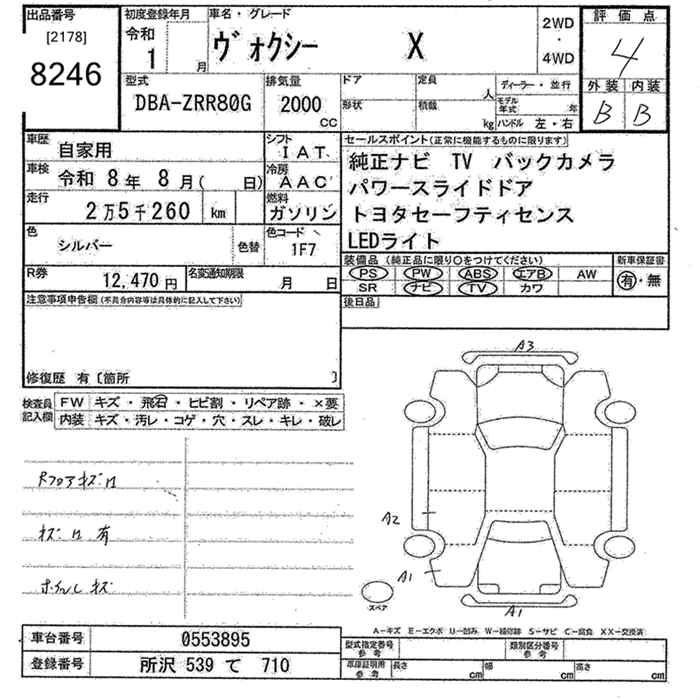 出品番号
[2178]
8246
初度登録年月
令和
1 月
車名・グレード
ヴォクシー X
2WD
・
4WD
評価点
4
外装 内装
B B
型式
DBA-ZRR80G
排気量
2000
CC
ドア
形状
定員
人
積載
kg
ディーラー・並行
モデル年式 年
ハンドル 左・右
車歴
自家用
シフト
IAT
車検
令和 8年 8月( 日)
冷房
AAC
走行
2万5千260 km
燃料
ガソリン
色
シルバー
色替
色コード
1F7
R券
12,470円
名変通知期限
月 日
セールスポイント(正常に機能するものに限ります)
純正ナビ TV バックカメラ
パワースライドドア
トヨタセーフティセンス
LEDライト
装備品(純正品に限り○をつけてください)
PS PW ABS エアB AW
SR ナビ TV カワ
新車保証書
有・無
後日品
注意事項申告欄(不具合内容等は具体的に記入して下さい)
修復歴 有〔箇所 〕
検査員
記入欄
FW キズ・飛石・ヒビ割・リペア跡・×要
内装 キズ・汚レ・コゲ・穴・スレ・キレ・破レ
Rフロアキズ
有
ホイルキズ
A3
A2
A1
A1
スペア
A-キズ E-エクボ U-凹み W-補修跡 S-サビ C-腐食 XX-交換済
車台番号
0553895
登録番号
所沢 539 て 710
型式指定番号
参考
類別区分番号
参考
車庫証明用
参考
長さ cm
幅 cm
高さ cm